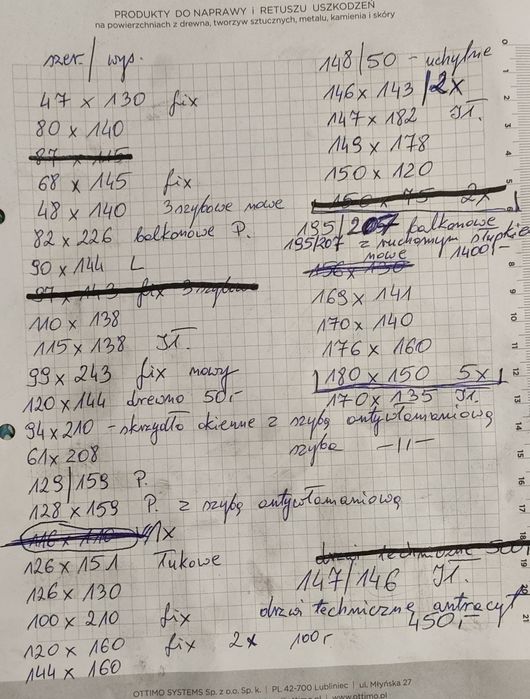 PRODUKTY DO NAPRAWY i RETUSZU USZKODZEŃ
na powierzchniach z drewna, tworzyw sztucznych, metalu, kamienia i skóry
szer. / wys.
47 x 130 fix
80 x 140
87 x 115
68 x 145 fix
48 x 140 3szybowe nowe
82 x 226 balkonowe P.
90 x 144 L
97 x 143 fix 3szybowe
110 x 138
115 x 138 Jł.
99 x 243 fix nowy
120 x 144 drewno 50,-
94 x 210 - skrzydło okienne z szybą antywłamaniową
61 x 208 szyba -11-
129/159 P.
128 x 159 P. z szybą antywłamaniową
116 x 110 1x
126 x 151 Łukowe
126 x 130
100 x 210 fix
120 x 160 fix 2x 100,-
144 x 160
148/50 - uchylne
146 x 143 / 2x
147 x 182 Jł.
149 x 178
150 x 120
150 x 75 2x
195/207 balkonowe
195/207 z ruchomym słupkiem
nowe 1400,-
156 x 150
169 x 141
170 x 140
176 x 160
180 x 150 5x
170 x 135 Jł.
drzwi techniczne 500,-
147/146 Jł.
drzwi techniczne antracyt
450,-
OTTIMO SYSTEMS Sp. z o.o. Sp. k. | PL 42-700 Lubliniec | ul. Młyńska 27
www.ottimo.eu